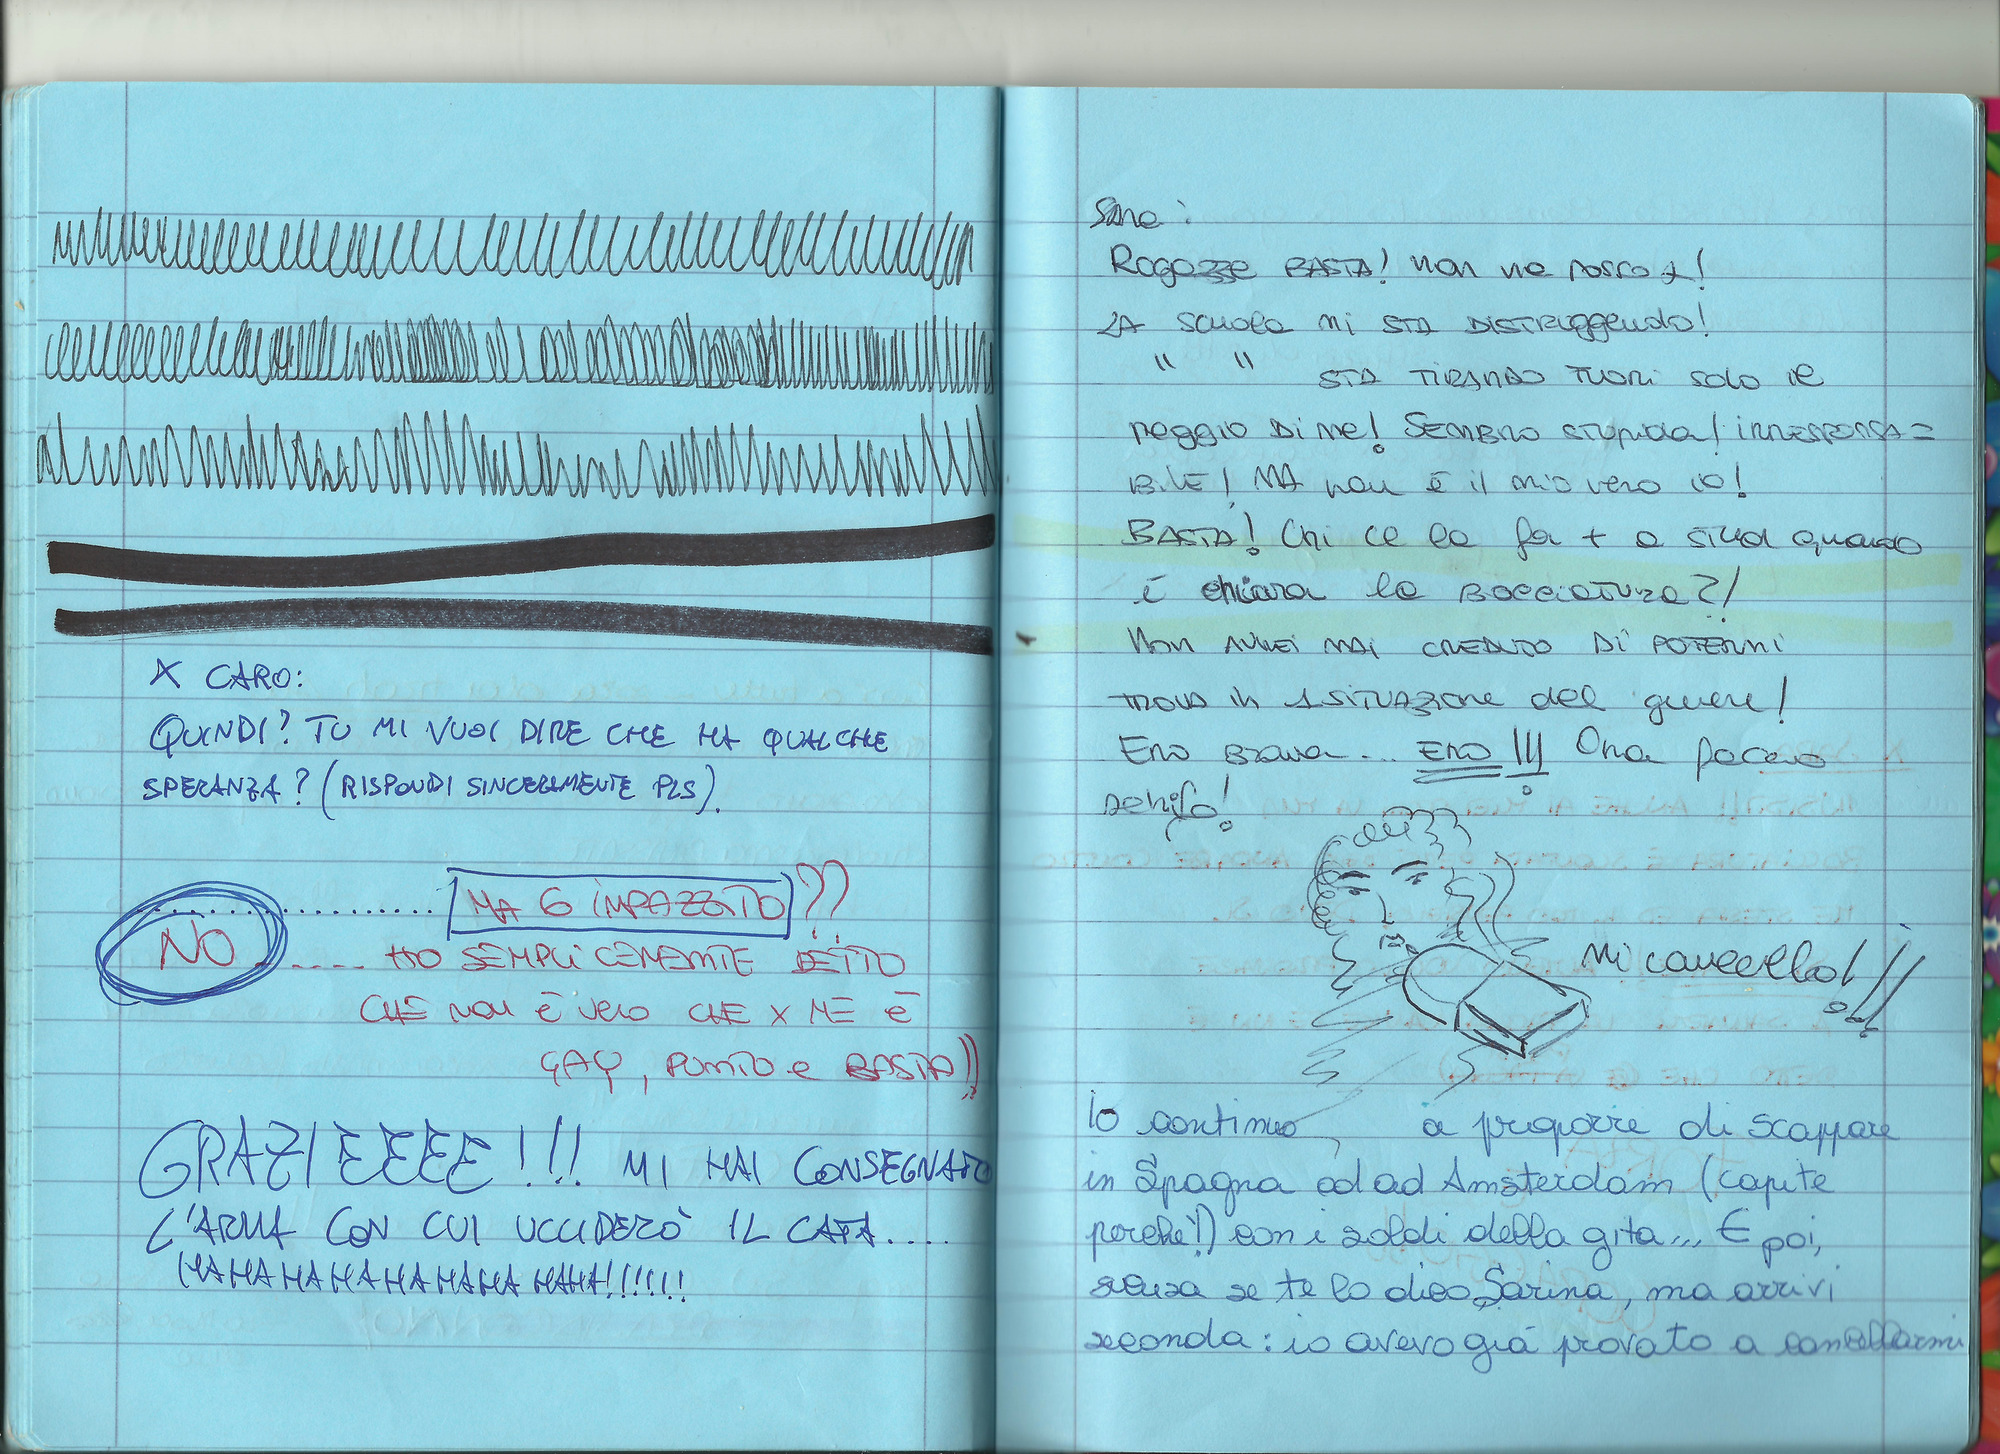 X CARO:
QUINDI? TU MI VUOI DIRE CHE HA QUALCHE
SPERANZA? (RISPONDI SINCERAMENTE PLS).
.................. MA 6 IMPAZZITO??
NO ..... HO SEMPLICEMENTE DETTO
CHE NON È VERO CHE X ME È
GAY, PUNTO e BASTA!!
GRAZIEEEEE!!! MI HAI CONSEGNATO
L'ARMA CON CUI UCCIDERÒ IL CATA....
(HAHAHAHAHAHAHAHAHA!!!!!!
Sara:
Ragazze BASTA! non ne posso +!
LA SCUOLA MI STA DISTRUggENDO!
" " STA TIRANDO FUORI SOLO IL
PEGGIO DI ME! SEMBRO STUPIDA! IRRESPONSA=
BILE! MA non È il mio vero io!
BASTA! Chi ce la fa + a studiare quando
È chiara la BOCCIATURA?!
NON AVREI MAI CREDUTO DI POTERMI
TROVARE IN 1 SITUAZIONE del genere!
Ero BRAVA... ERO!!! Ora faccio
schifo!
Mi cancello!!!
Io continuo a proporre di scappare
in Spagna od ad Amsterdam (capite
perché!) con i soldi della gita... E poi,
scusa se te lo dico Sarina, ma arrivi
seconda: io avevo già provato a cancellarmi